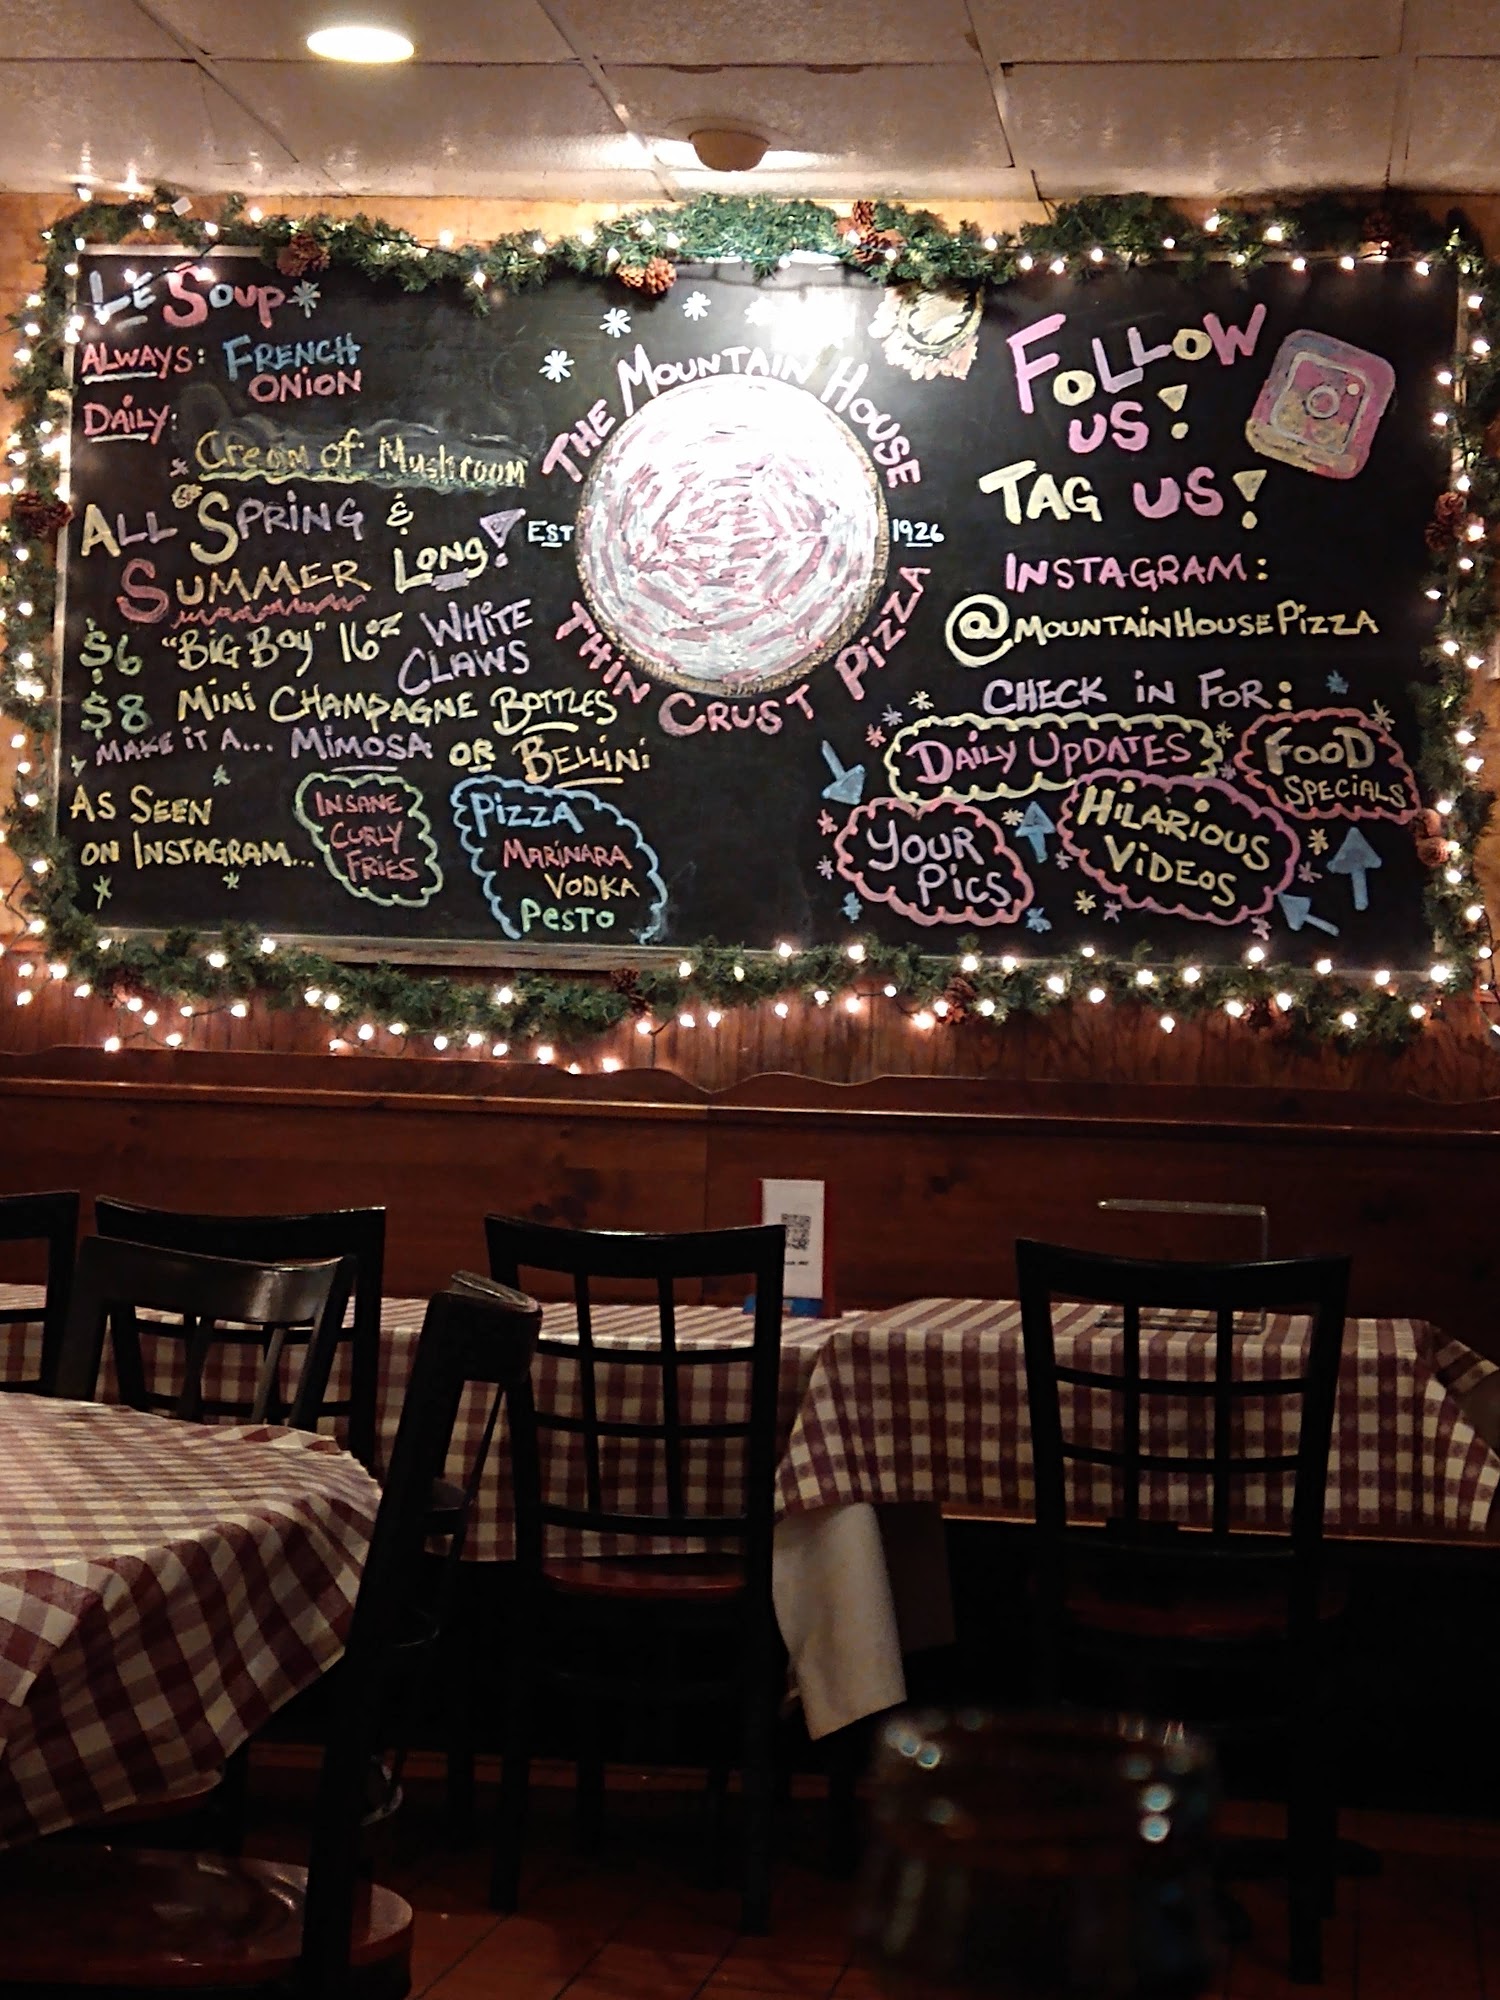 LE SOUP
ALWAYS: FRENCH
ONION
DAILY:
Cream of Mushroom
ALL SPRING &
SUMMER LONG!
$6 "BIG BOY" 16oz WHITE
CLAWS
$8 MINI CHAMPAGNE BOTTLES
MAKE IT A... MIMOSA OR BELLINI
AS SEEN
ON INSTAGRAM...
INSANE
CURLY
FRIES
PIZZA
MARINARA
VODKA
PESTO
THE MOUNTAIN HOUSE
EST 1926
THIN CRUST PIZZA
FOLLOW
US!
TAG US!
INSTAGRAM:
@MOUNTAINHOUSEPIZZA
CHECK IN FOR:
DAILY UPDATES
FOOD
SPECIALS
YOUR
PICS
HILARIOUS
VIDEOS